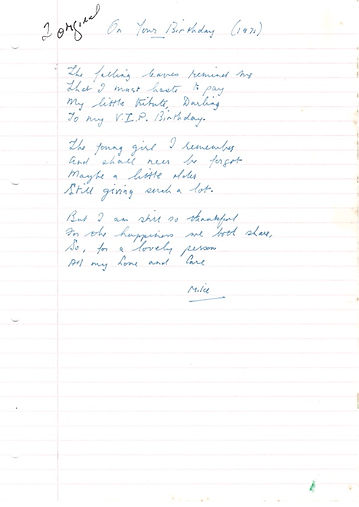 2 original
On Your Birthday (1971)
The falling leaves remind me
That I must haste to pay
My little tribute, Darling
To my V.I.P. Birthday.
The young girl I remember
And shall never be forgot
Maybe a little older
Still giving such a lot.
But I am still so thankful
For the happiness we both share,
So, for a lovely person
All my Love and Care
Mike